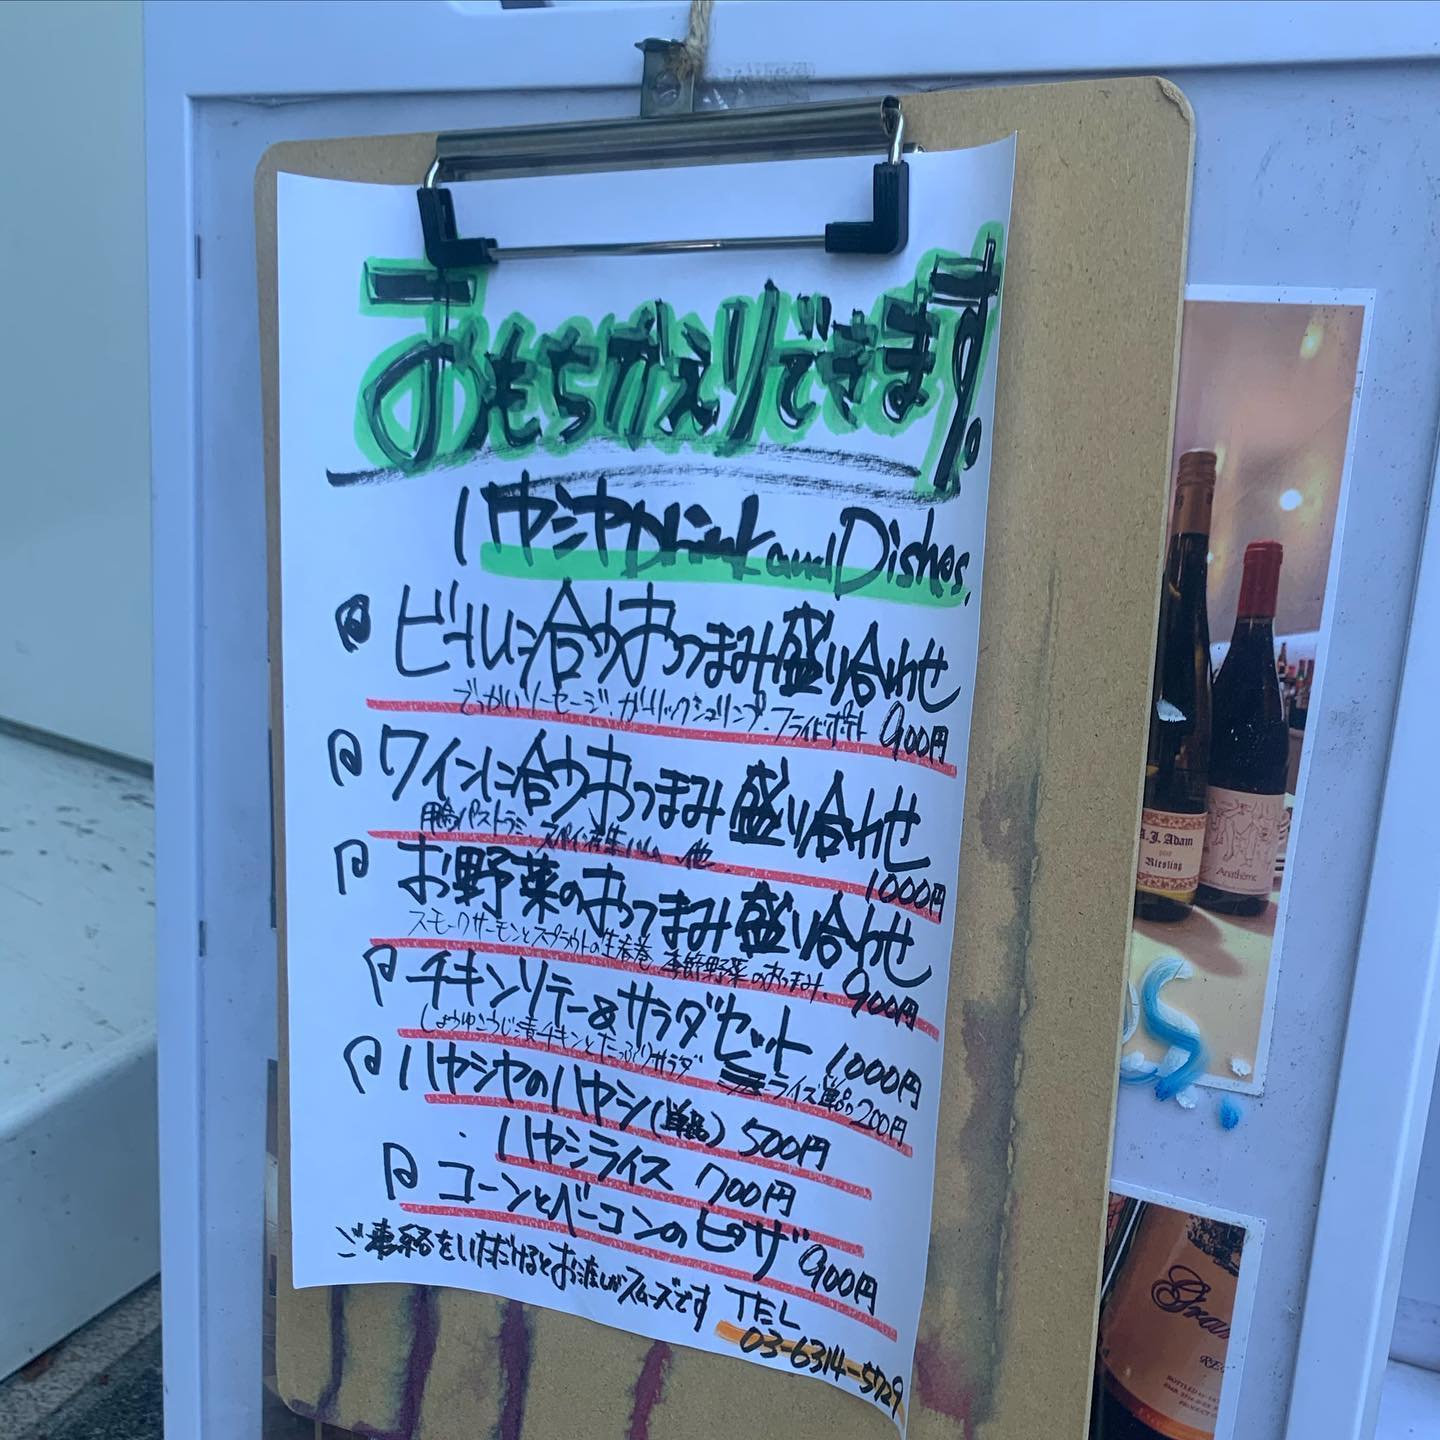 おもちかえりできます。
ハヤシヤ Drink and Dishes.
ビールに合うおつまみ盛り合わせ
でっかいソーセージ、ガーリックシュリンプ、フライドポテト 900円
ワインに合うおつまみ盛り合わせ
鴨パストラミ、スペイン産生ハム、他 1000円
お野菜のおつまみ盛り合わせ
スモークサーモンとスプラウトの生春巻 季節野菜のおつまみ、900円
チキンソテー&サラダセット 1000円
しょうゆこうじ漬チキンとたっぷりサラダ ライス単品 200円
ハヤシヤのハヤシ(単品) 500円
ハヤシライス 700円
コーンとベーコンのピザ 900円
ご連絡をいただけるとお渡しがスムーズです TEL
03-6314-5729
A.J. Adam
Riesling
Anathème
Gra
BOTTLED BY